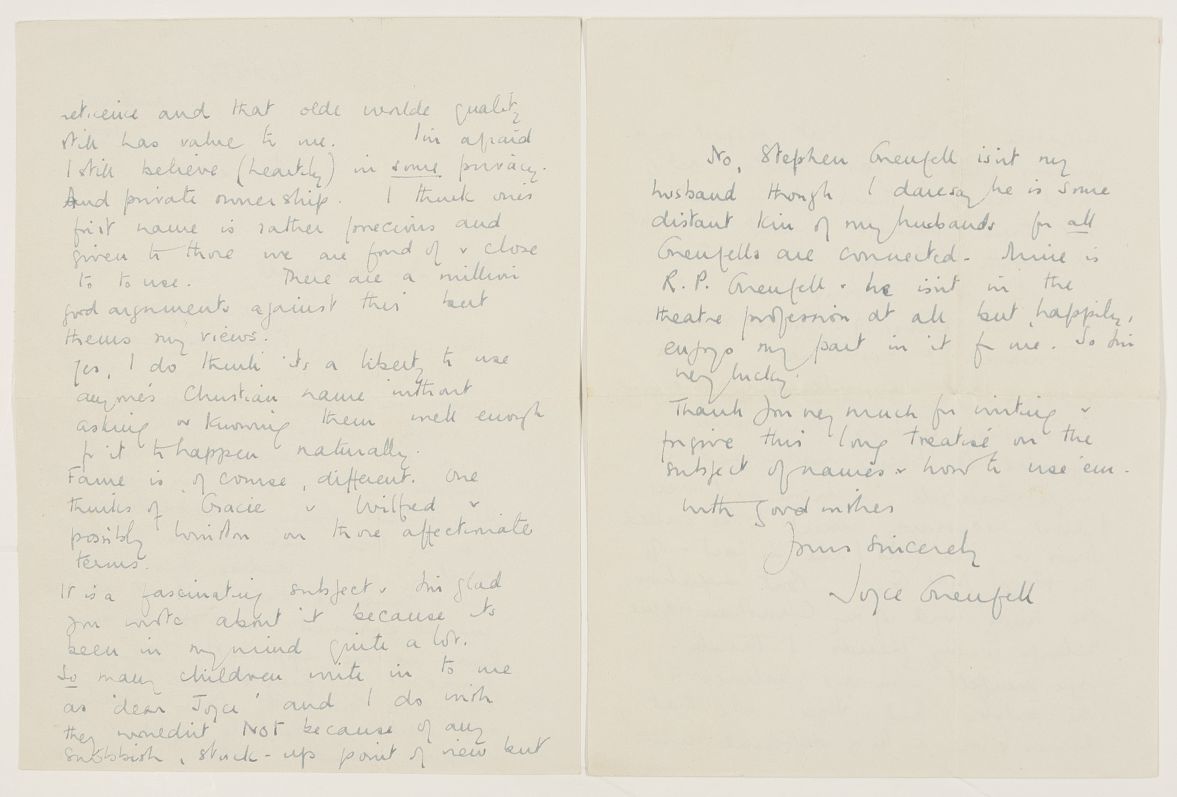 reticence and that olde worlde quality
still has value to me. I'm afraid
I still believe (heartily) in some privacy.
And private ownership. I think one's
first name is rather precious and
given to those we are fond of & close
to to use. There are a million
good arguments against this but
thems my views.
Yes, I do think it's a liberty to use
anyone's Christian name without
asking or knowing them well enough
for it to happen naturally.
Fame is, of course, different. One
thinks of Gracie & Wilfred &
possibly Winston on those affectionate
terms.
It is a fascinating subject & I'm glad
you wrote about it because its
been in my mind quite a lot.
So many children write in to me
as 'dear Joyce' and I do wish
they wouldn't. Not because of any
snobbish, stuck-up point of view but
No, Stephen Grenfell isn't my
husband though I daresay he is some
distant kin of my husbands for all
Grenfells are connected. Mine is
R.P. Grenfell & he isn't in the
theatre profession at all but, happily,
enjoys my part in it for me. So I'm
very lucky.
Thank you very much for writing &
forgive this long treatise on the
subject of names & how to use 'em.
With good wishes
Yours sincerely
Joyce Grenfell